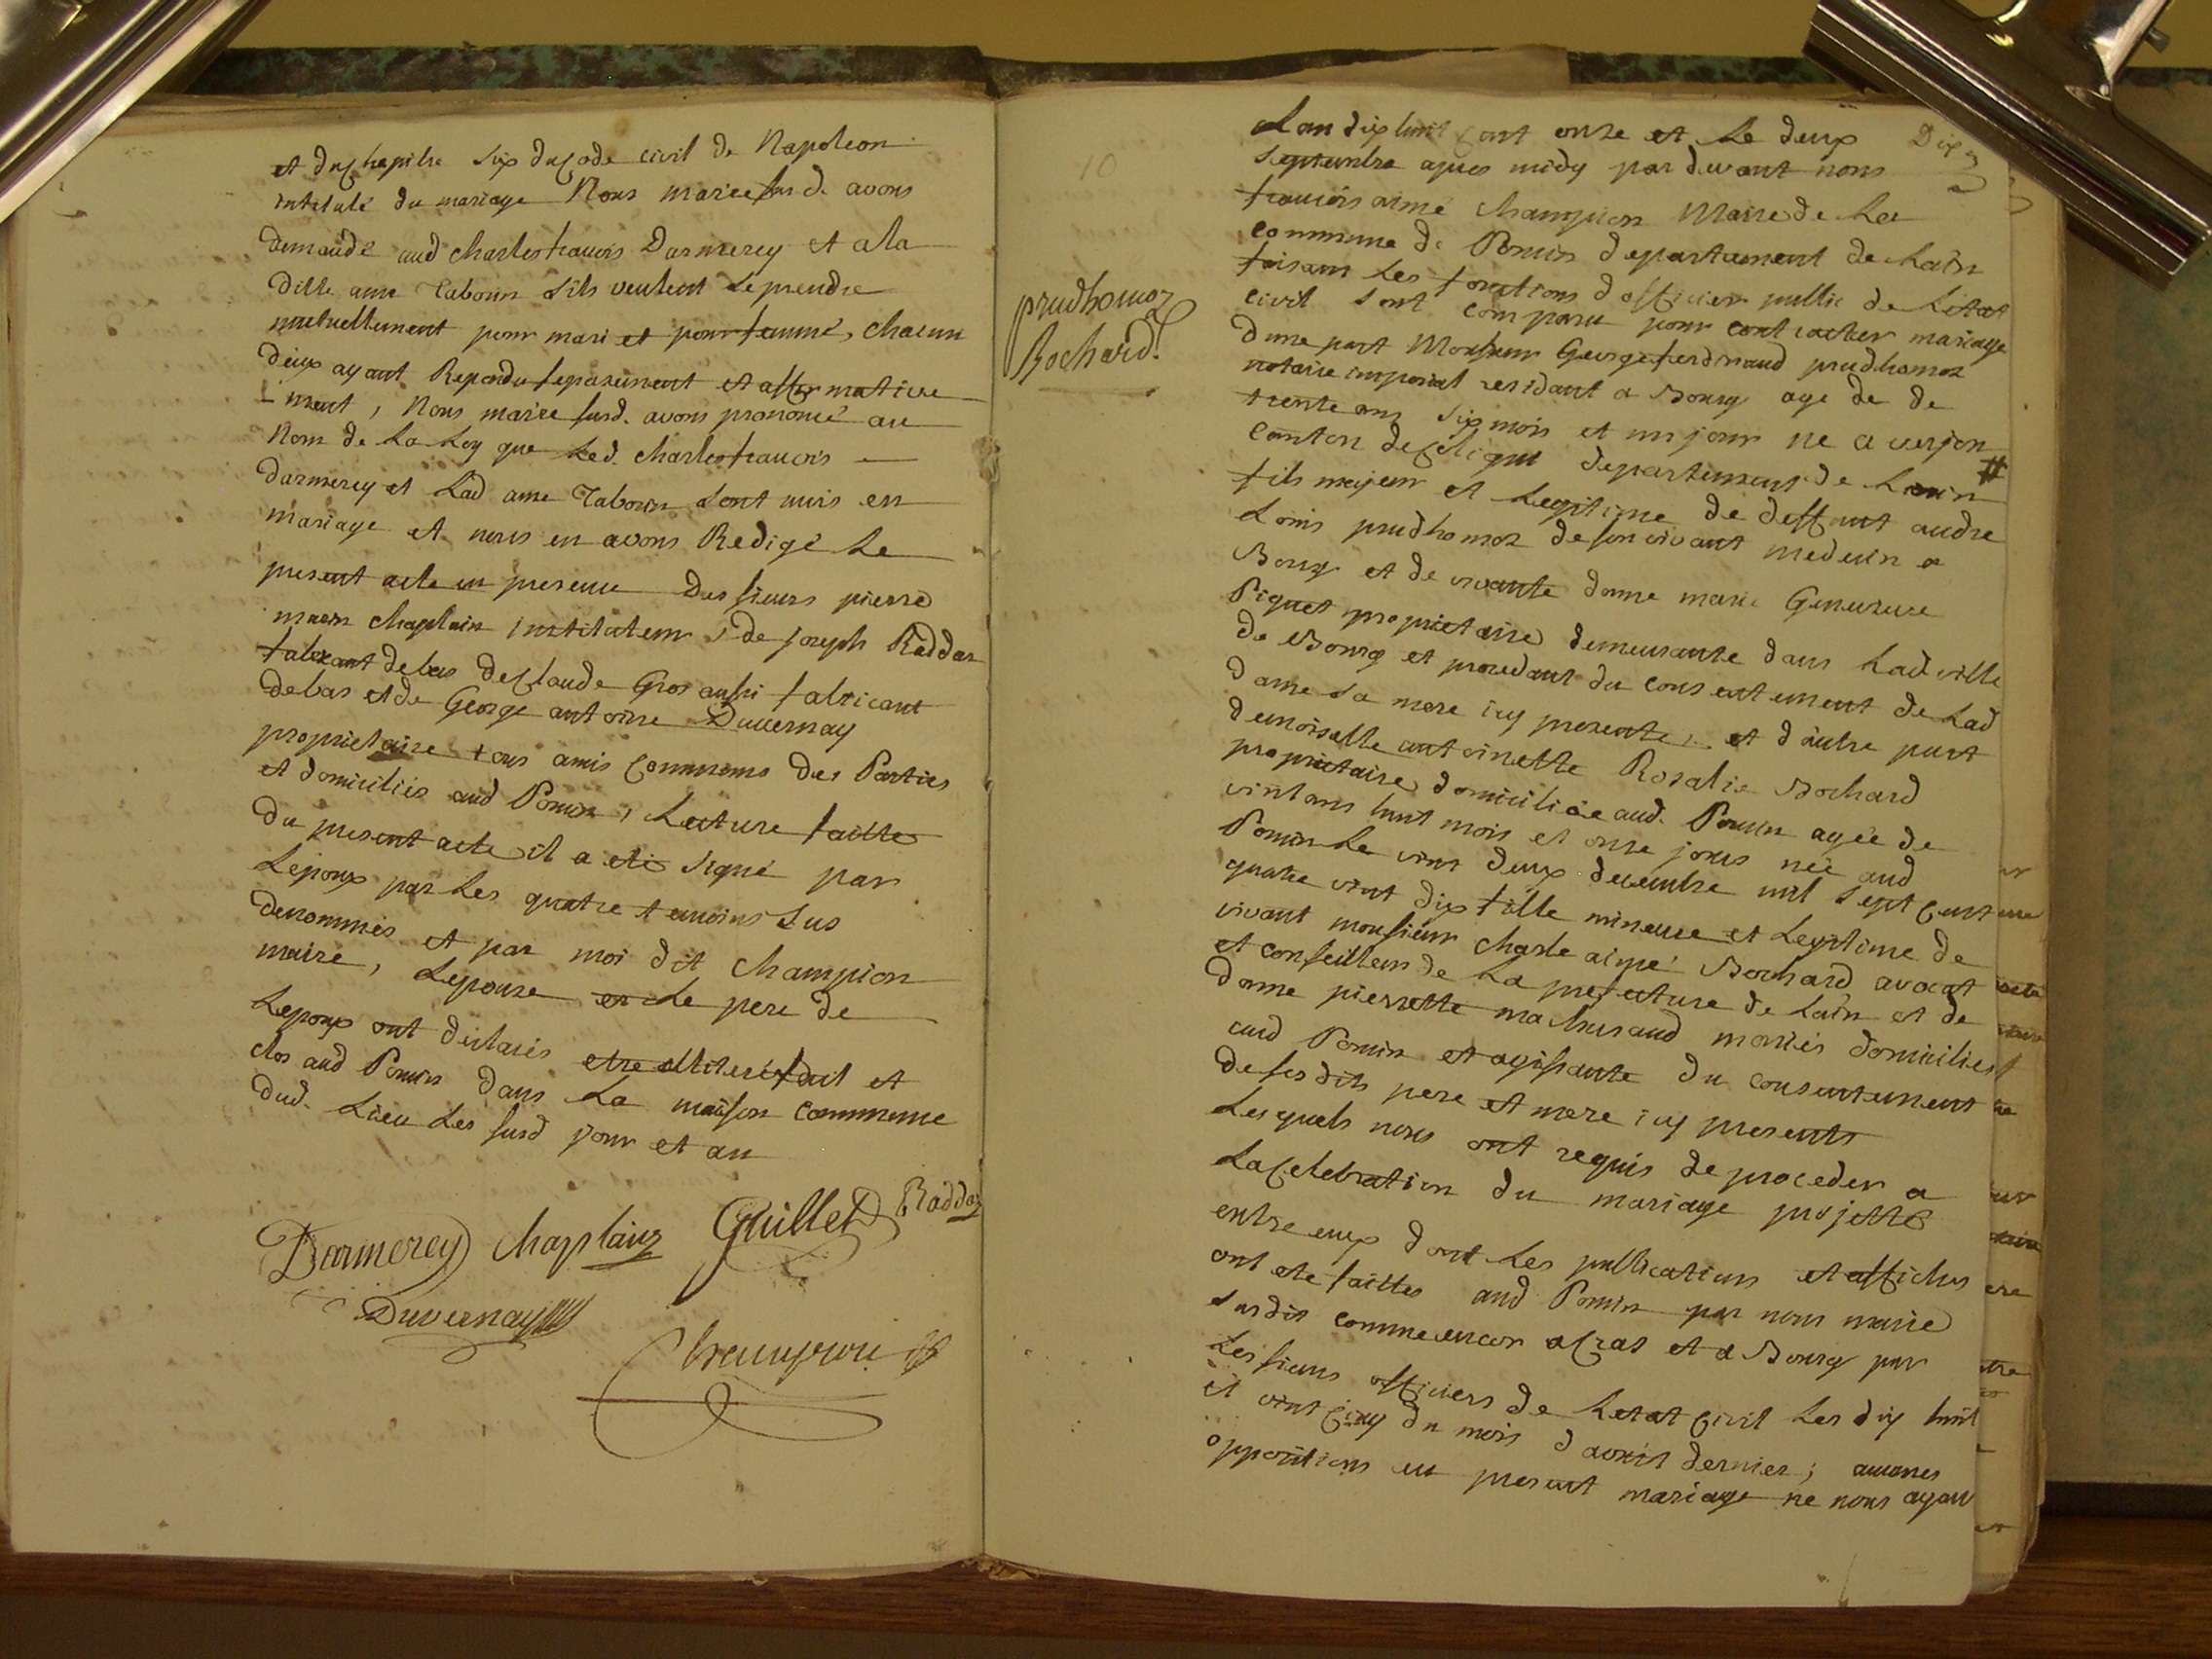 et du chapitre six du code civil de Napoleon
intitulé du mariage Nous maire susd. avons
demandé aud charles francois Darmerey et a la
ditte anne Tabouin sils veulent se prendre
mutuellement pour mari et pour femme, chacun
deux ayant Repondu separement et affirmative
ment, Nous maire susd. avons prononcé au
Nom de La Loy que Led. charles francois
darmerey et Lad anne Tabouin sont unis en
mariage et nous en avons Redigé Le
present acte en presence Des sieurs pierre
marin chaplain instituteur, de joseph Raddaz
fabricant de bas de claude Gros aussi fabricant
de bas et de George antoine Duvernay
proprietaire tous amis communs des Parties
et domiciliés aud Poncin, Lecture faitte
du present acte il a eté signé par
Lepoux par Les quatre temoins sus
denommés et par moi dit champion
maire, Lepouse et Le pere de
Lepoux ont declarés etre illiteré fait et
clos aud Poncin dans La maison commune
dud. Lieu Les susd jour et an
Darmerey chaplain Guillet Raddaz
Duvernay
Champion
10
prudhomoz
Bochard.
Lan dix huit cent onze et Le deux
septembre apres midy par devant nous
francois aimé champion Maire de La
commune de Poncin departement de Lain
faisant Les fonctions d officier public de Letat
civil sont comparu pour contracter mariage
dune part Monsieur George ferdinand prudhomoz
notaire imperial residant a Bourg agé de de
trente ans six mois et un jour né a verjon
canton de coligni departement de Lain #
fils majeur et Legitime de deffunt andre
Louis prudhomoz de son vivant medecin a
Bourg et de vivante dame marie Genevieve
Piquet proprietaire demeurante dans Lad ville
de Bourg et procedant du consentement de Lad
dame sa mere icy presente, et d'autre part
demoiselle antoinette Rosalie Bochard
proprietaire domiciliée aud. Poncin agée de
vint ans huit mois et onze jours née aud
Poncin Le vint deux decembre mil sept cent
quatre vint dix fille mineure et Legitime de
vivant monsieur charle aimé Bochard avocat
et conseiller de La prefecture de Lain et de
dame pierrette mariés domiciliés
aud Poncin et agissante du consentement
de ses dits pere et mere icy presents
Lesquels nous ont requis de proceder a
La celebration du mariage projetté
entre eux dont Les publications et affiches
ont eté faittes aud Poncin par nous maire
susdit comme encor a et a Bourg par
Les sieurs officiers de Letat civil Les dix huit
et vint cinq du mois d aoust dernier; aucunes
oppositions au present mariage ne nous ayant